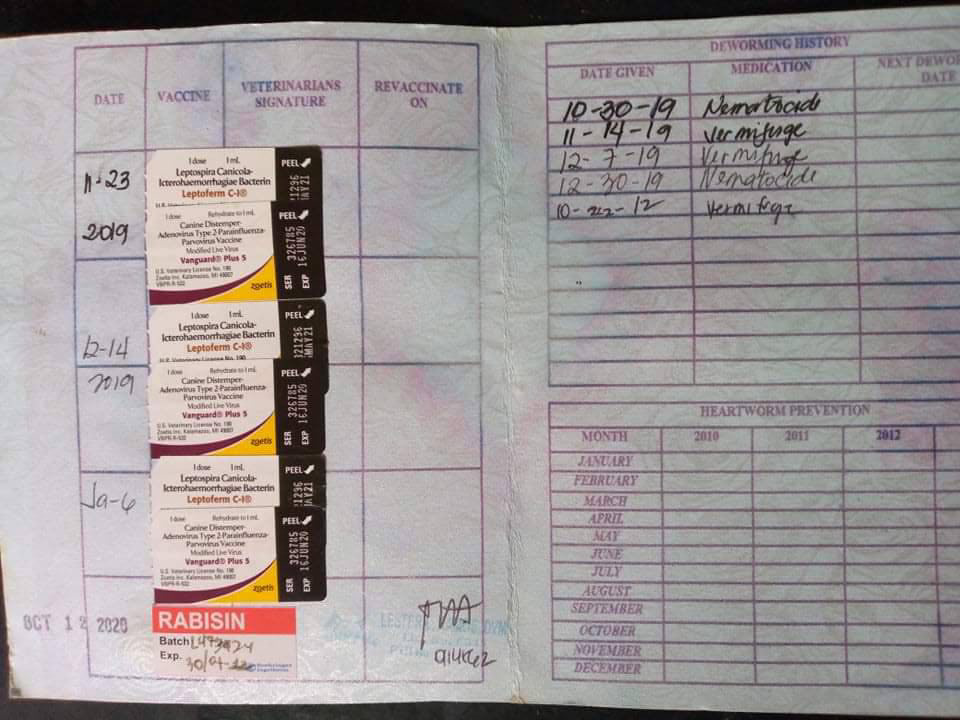 DATE
VACCINE
VETERINARIANS SIGNATURE
REVACCINATE ON
11-23
2019
1 dose 1 mL
Leptospira Canicola-
Icterohaemorrhagiae Bacterin
Leptoferm C-I®
PEEL
21296
MAY21
1 dose Rehydrate to 1 mL
Canine Distemper-
Adenovirus Type 2-Parainfluenza-
Parvovirus Vaccine
Modified Live Virus
Vanguard® Plus 5
U.S. Veterinary License No. 190
Zoetis Inc. Kalamazoo, MI 49007
VBPR-R-502
zoetis
PEEL
SER 326785
EXP 16JUN20
12-14
2019
1 dose 1 mL
Leptospira Canicola-
Icterohaemorrhagiae Bacterin
Leptoferm C-I®
U.S. Veterinary License No. 190
PEEL
321296
MAY21
1 dose Rehydrate to 1 mL
Canine Distemper-
Adenovirus Type 2-Parainfluenza-
Parvovirus Vaccine
Modified Live Virus
Vanguard® Plus 5
U.S. Veterinary License No. 190
Zoetis Inc. Kalamazoo, MI 49007
VBPR-R-502
zoetis
PEEL
SER 326785
EXP 16JUN20
Ja-6
1 dose 1 mL
Leptospira Canicola-
Icterohaemorrhagiae Bacterin
Leptoferm C-I®
PEEL
21296
MAY21
1 dose Rehydrate to 1 mL
Canine Distemper-
Adenovirus Type 2-Parainfluenza-
Parvovirus Vaccine
Modified Live Virus
Vanguard® Plus 5
U.S. Veterinary License No. 190
Zoetis Inc. Kalamazoo, MI 49007
VBPR-R-502
zoetis
PEEL
SER 326785
EXP 16JUN20
OCT 12 2020
RABISIN
Batch
Exp.
LESTER DVM
DEWORMING HISTORY
DATE GIVEN MEDICATION NEXT DEWO
DATE
10-30-19 Nematocide
11-14-19 Vermifuge
12-7-19 Vermifuge
12-30-19 Nematocide
Vermifuge
HEARTWORM PREVENTION
MONTH 2010 2011 2012
JANUARY
FEBRUARY
MARCH
APRIL
MAY
JUNE
JULY
AUGUST
SEPTEMBER
OCTOBER
NOVEMBER
DECEMBER